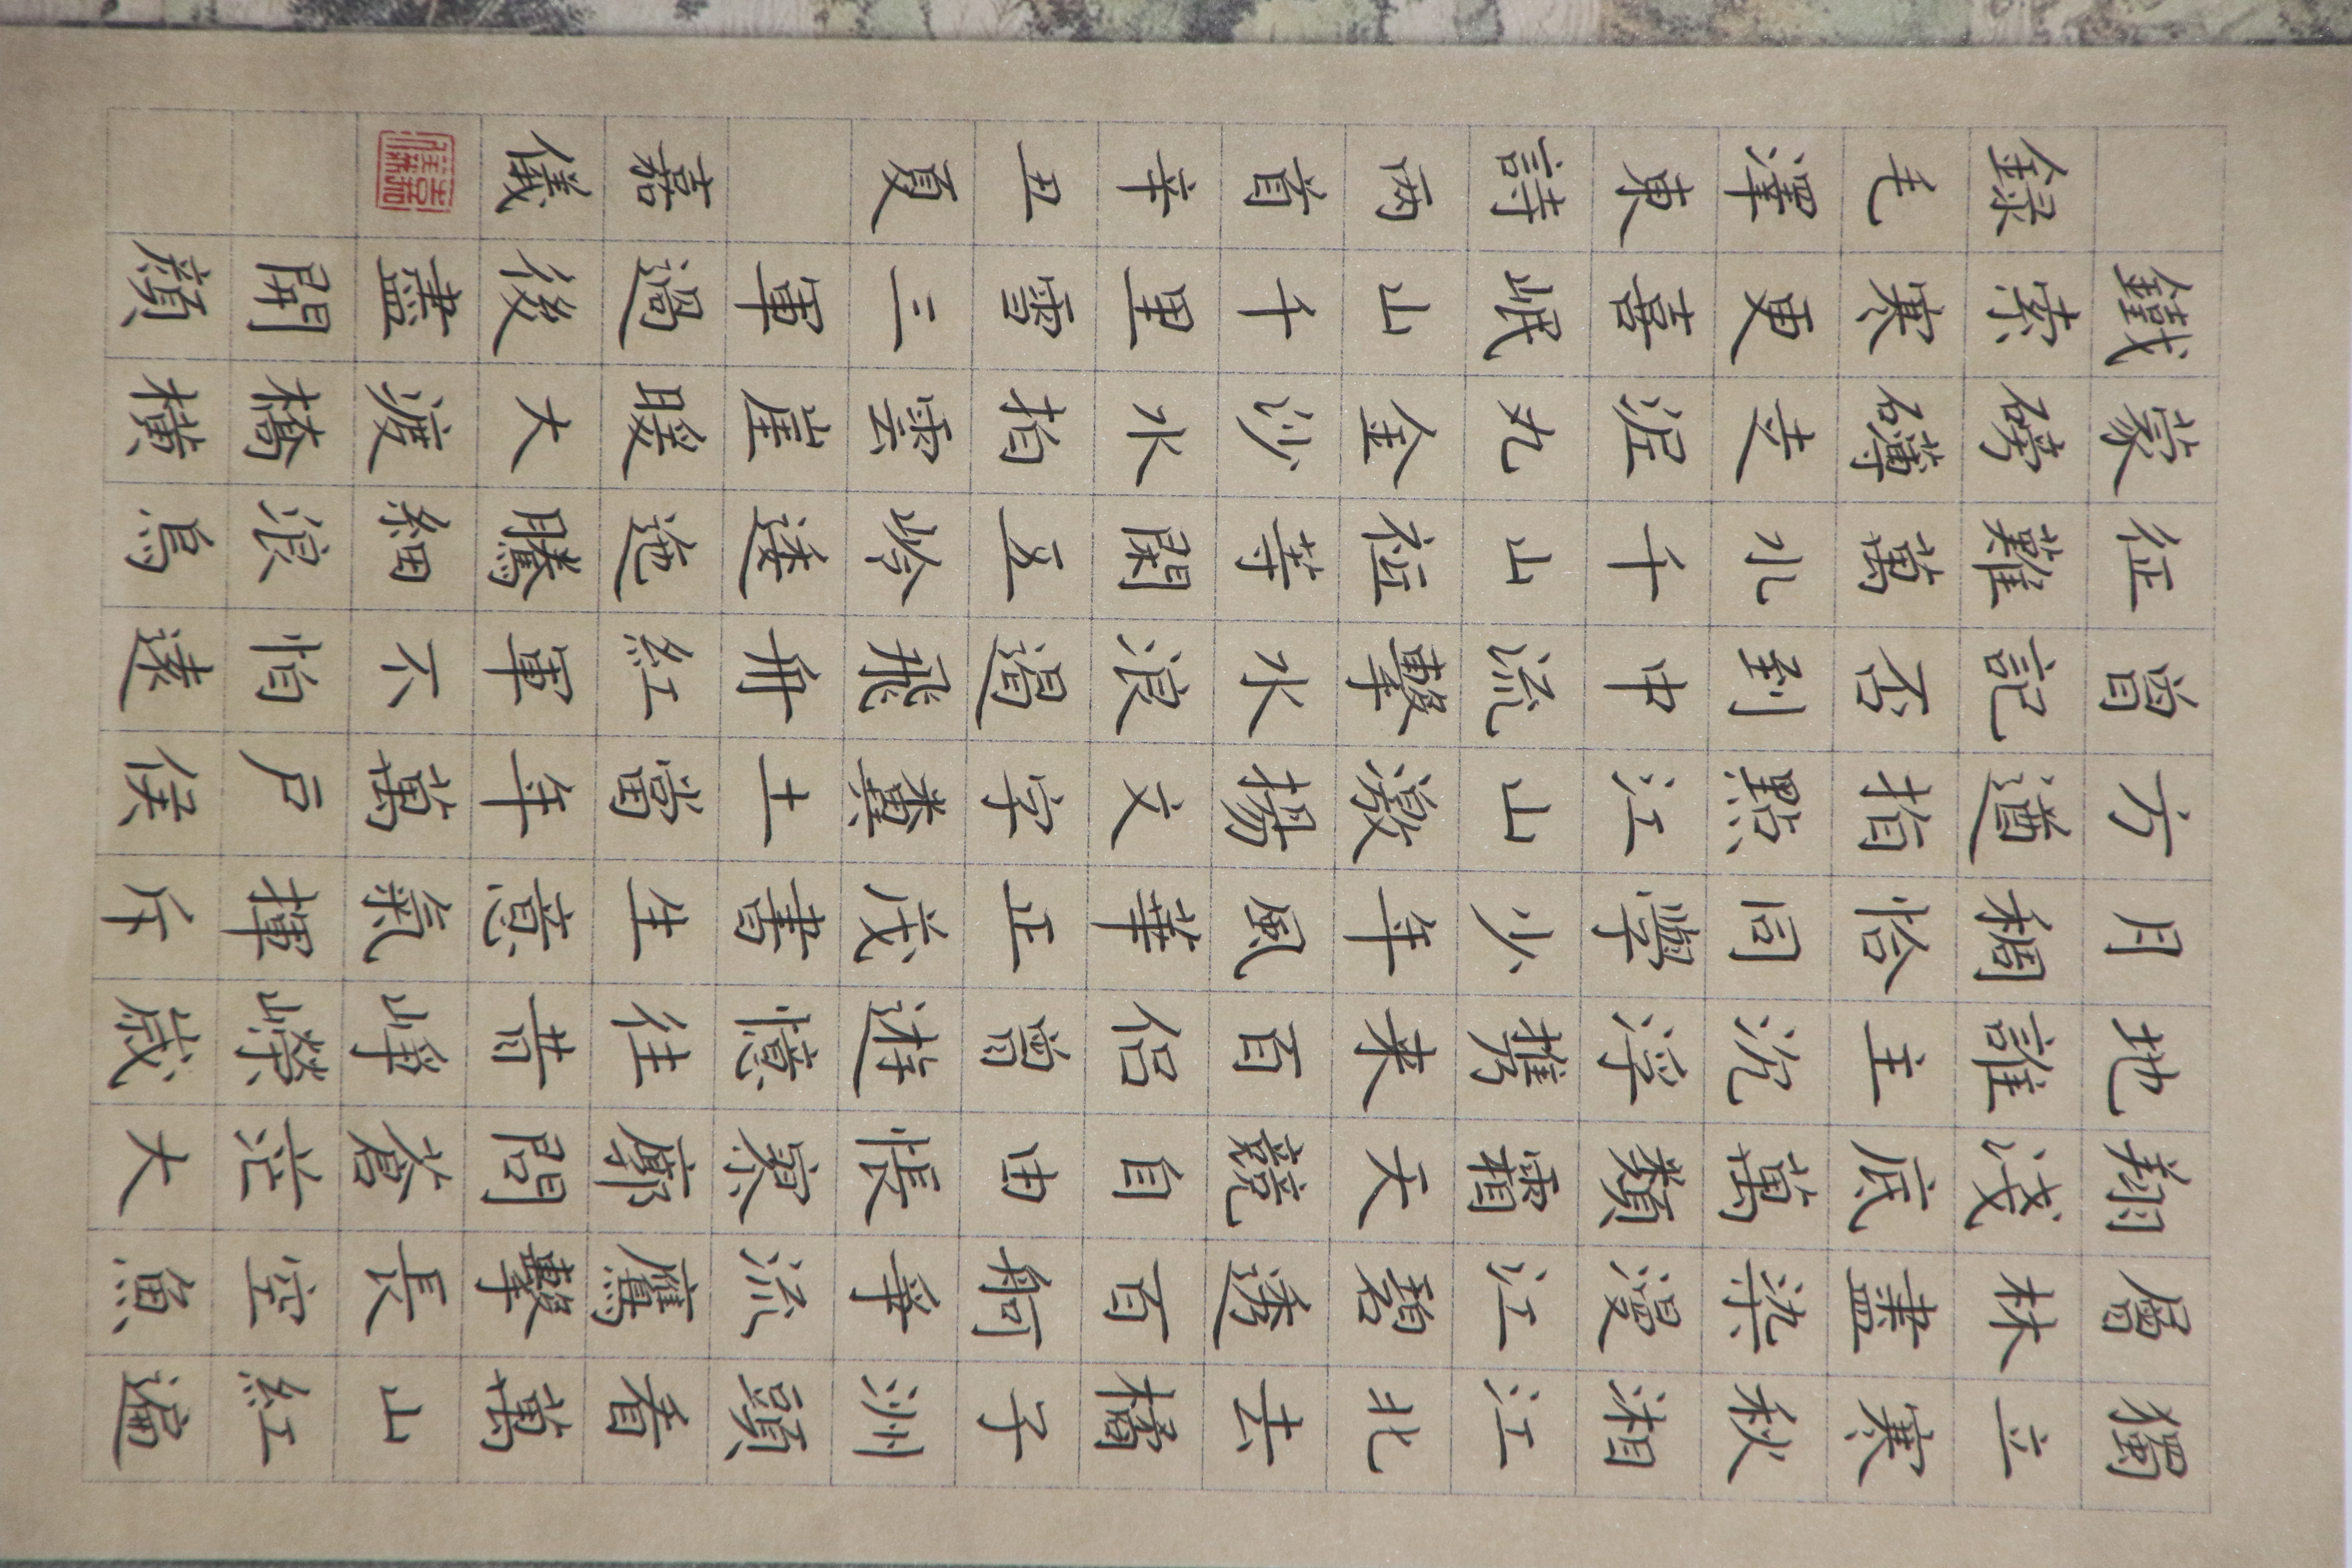 獨立寒秋湘江北去橘子洲頭看萬山紅遍
層林盡染漫江碧透百舸爭流鷹擊長空魚
翔淺底萬類霜天競自由悵寥廓問蒼茫大
地誰主沉浮攜来百侶曾遊憶往昔崢嶸歲
月稠恰同學少年風華正茂書生意氣揮斥
方遒指點江山激揚文字糞土當年萬户侯
曾記否到中流擊水浪遏飛舟紅軍不怕遠
征難萬水千山祗等閑五岭逶迤騰細浪烏
蒙磅礴走泥丸金沙水拍雲崖暖大渡橋橫
鐵索寒更喜岷山千里雪三軍過後盡開顏
録毛澤東詩两首辛丑夏 嘉儀